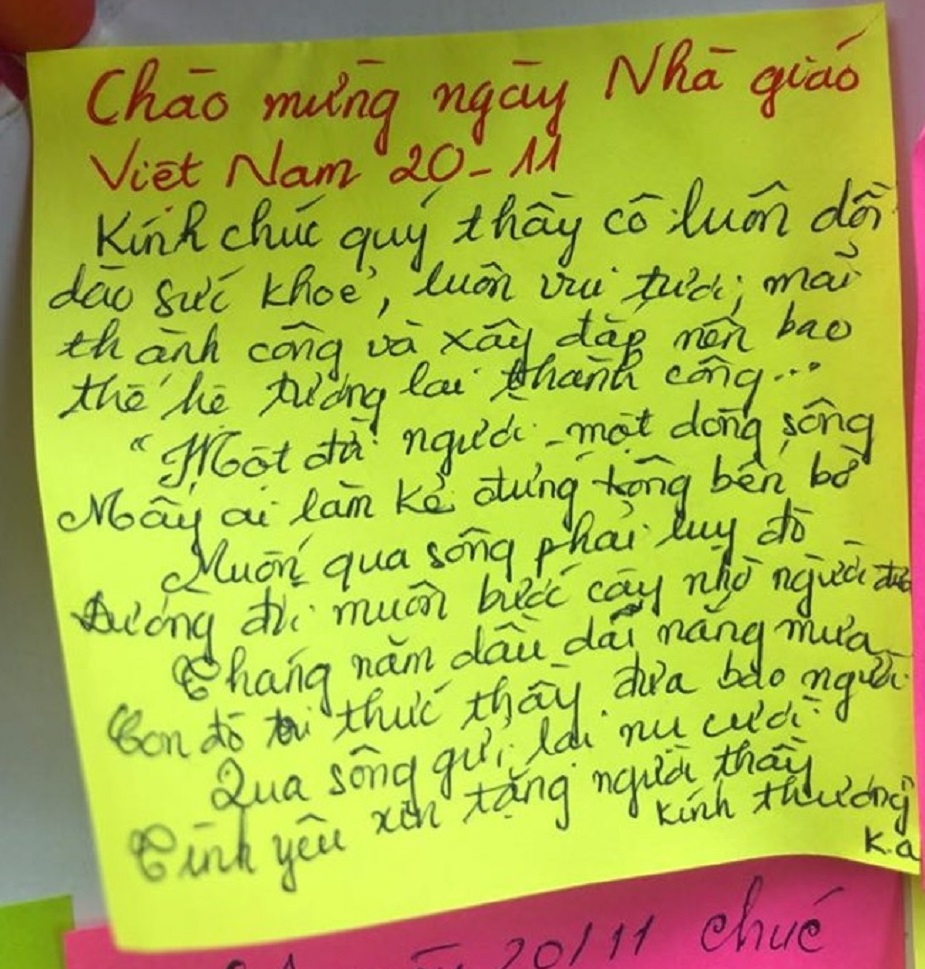 Chào mừng ngày Nhà giáo
Việt Nam 20-11
Kính chúc quý thầy cô luôn dồi
dào sức khoẻ, luôn vui tươi, mãi
thành công và xây đắp nên bao
thế hệ tương lai thành công...
"Một đời người - một dòng sông
Mấy ai làm kẻ đứng trông bên bờ
Muốn qua sông phải luỵ đò
Đường đi muôn bước cậy nhờ người đưa
Tháng năm dầu dãi nắng mưa
Con đò tri thức thầy đưa bao người
Qua sông gửi lại nụ cười
Tình yêu xin tặng người thầy
kính thương"
K.a
20/11 chúc